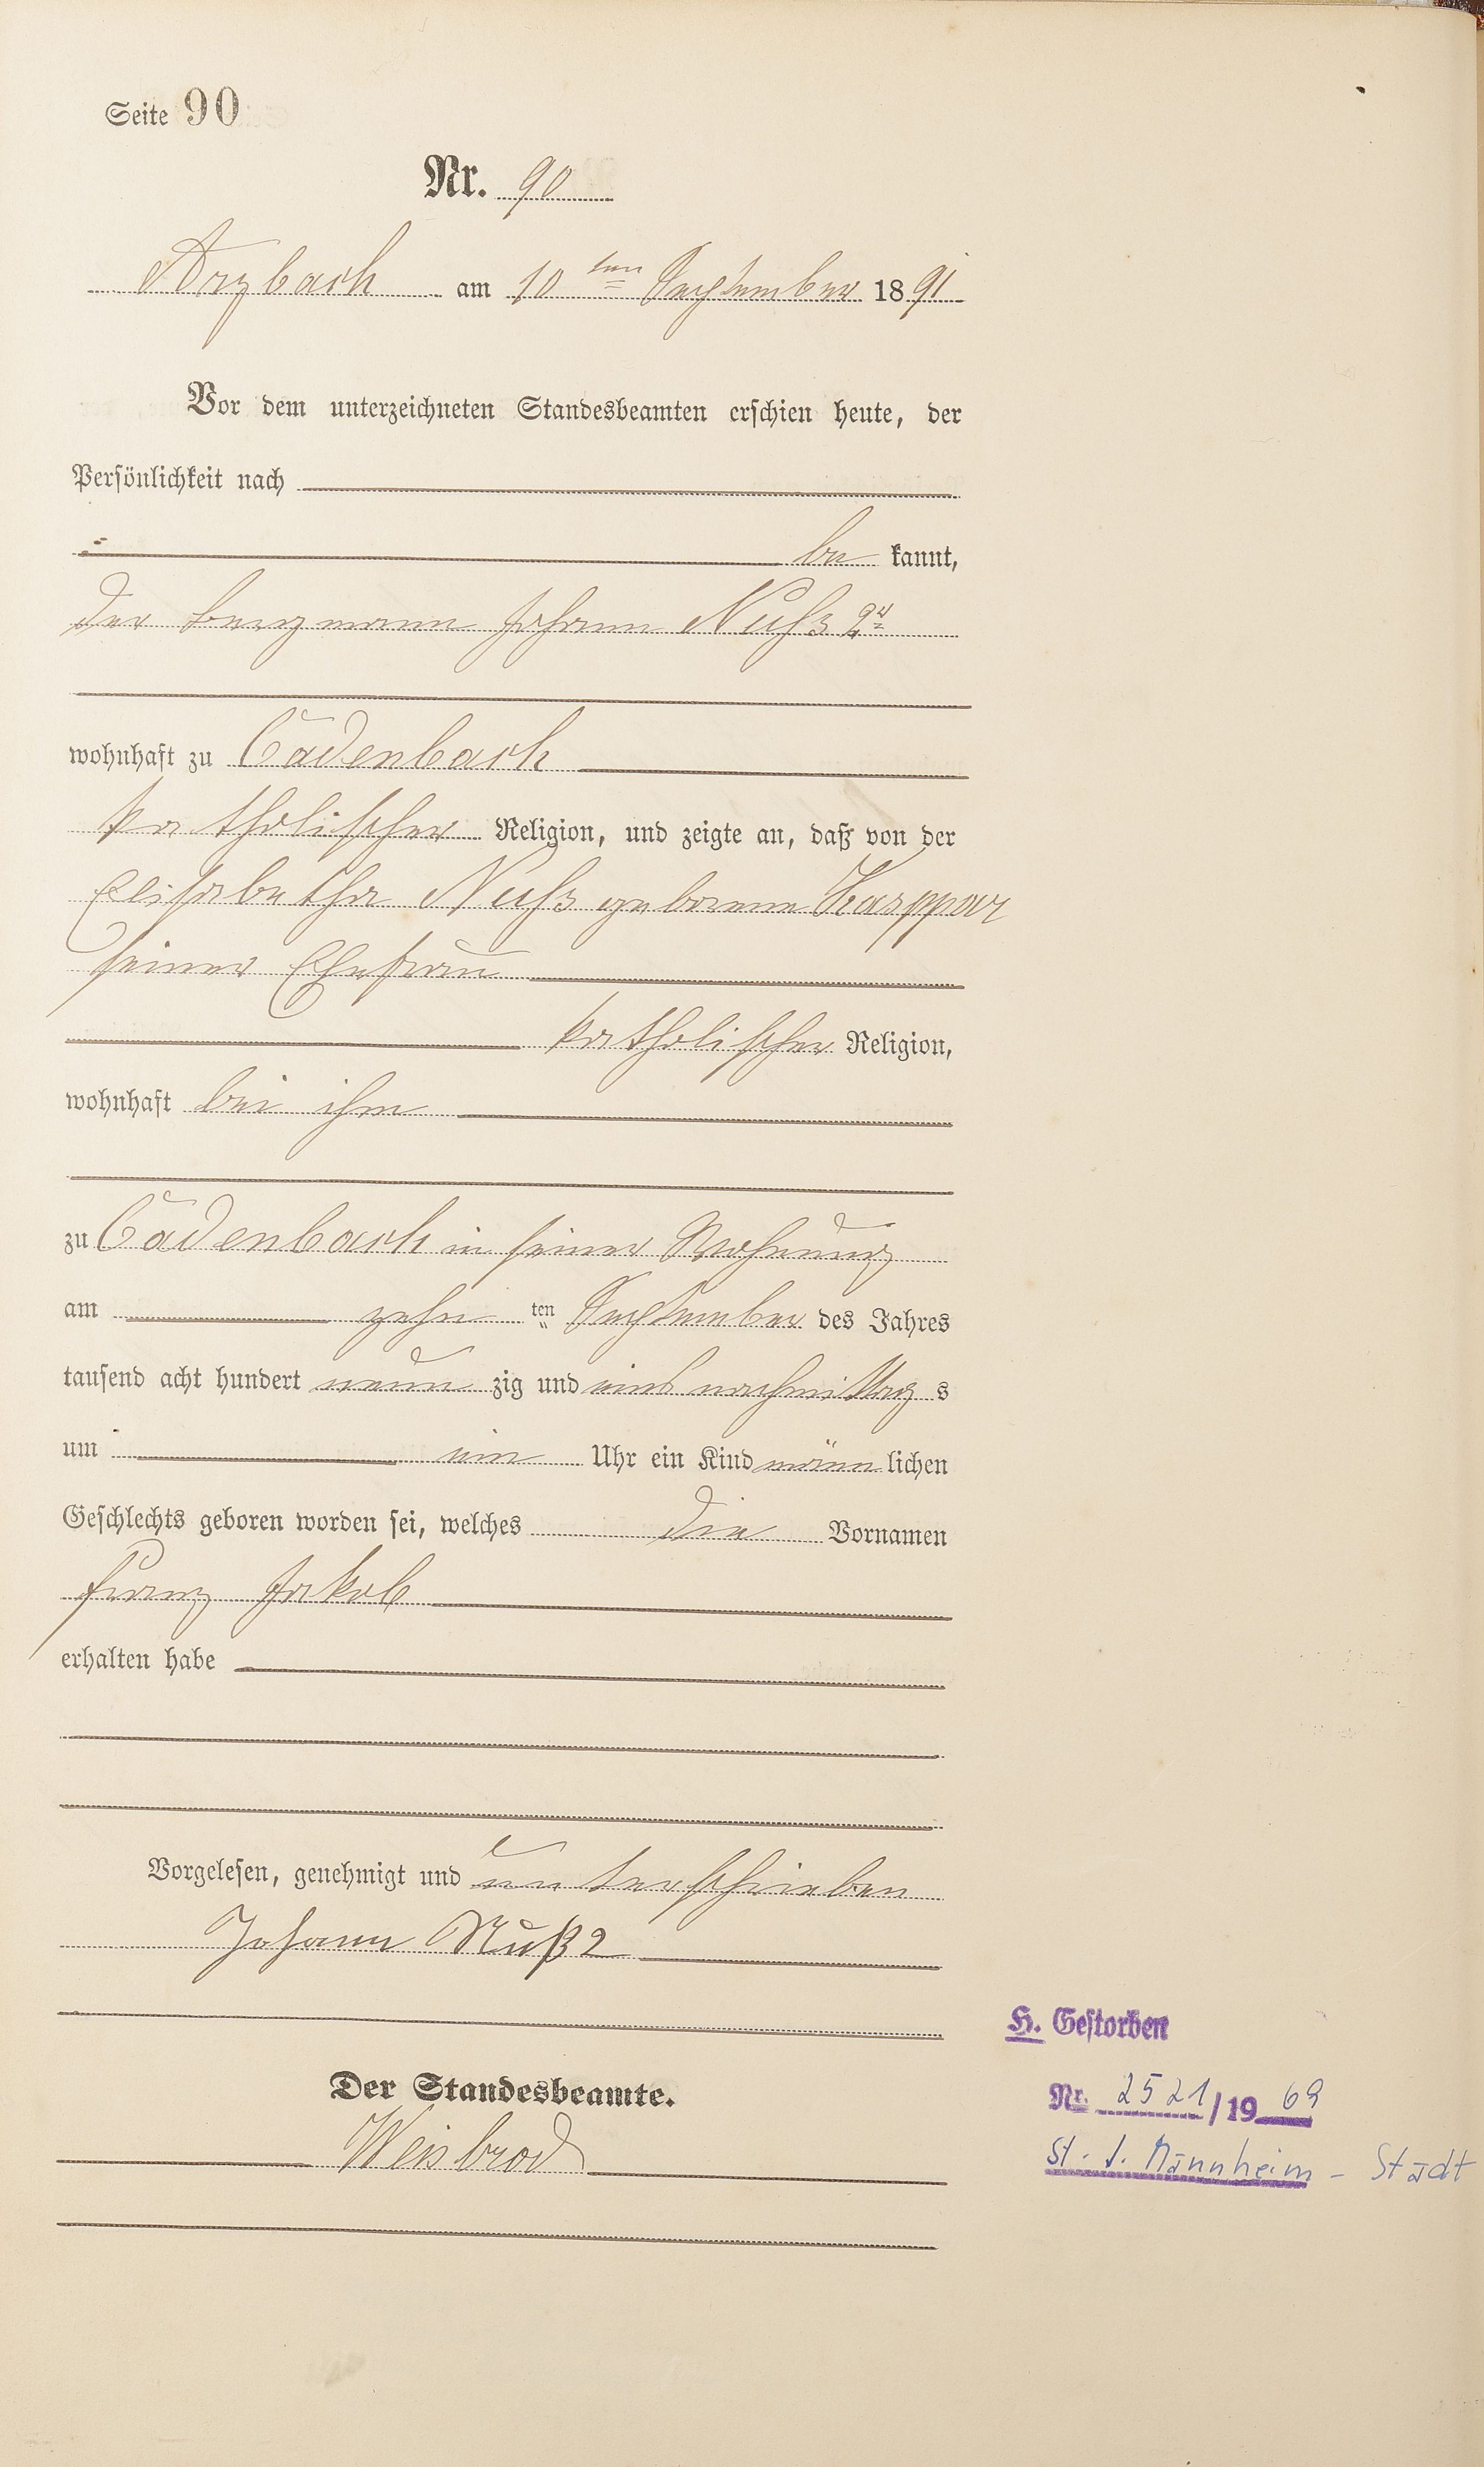 Seite 90
Nr. 90
Arzbach am 10ten September 1891
Vor dem unterzeichneten Standesbeamten erschien heute, der
Persönlichkeit nach
be kannt,
der Bergmann Johann Nuß 2r
wohnhaft zu Cadenbach
katholischer Religion, und zeigte an, daß von der
Elisabetha Nuß geborene Kasppar
seiner Ehefrau
katholischer Religion,
wohnhaft bei ihm
zu Cadenbach in seiner Wohnung
am zehn ten September des Jahres
tausend acht hundert neun zig und eins nachmittag s
um ein Uhr ein Kind männ lichen
Geschlechts geboren worden sei, welches die Vornamen
Franz Jakob
erhalten habe
Vorgelesen, genehmigt und unterschrieben
Johann Nuß 2
H. Gestorben
Der Standesbeamte.
Nr. 2521/1969
Weisbrod
St. A. Mannheim - Stadt